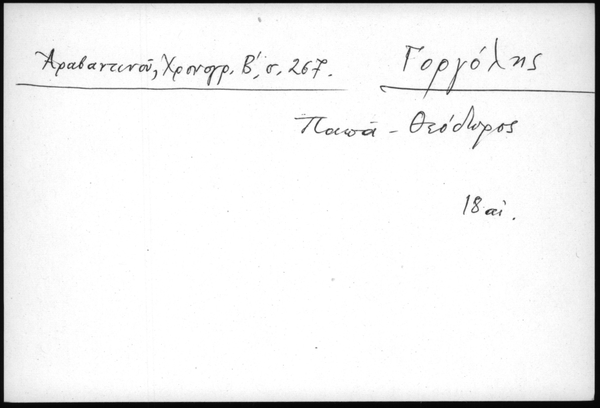 Ἀραβαντινοῦ, Χρονογρ. Β΄, σ. 267.
Γοργόλης
Παπᾶ - Θεόδωρος
18 αἰ.